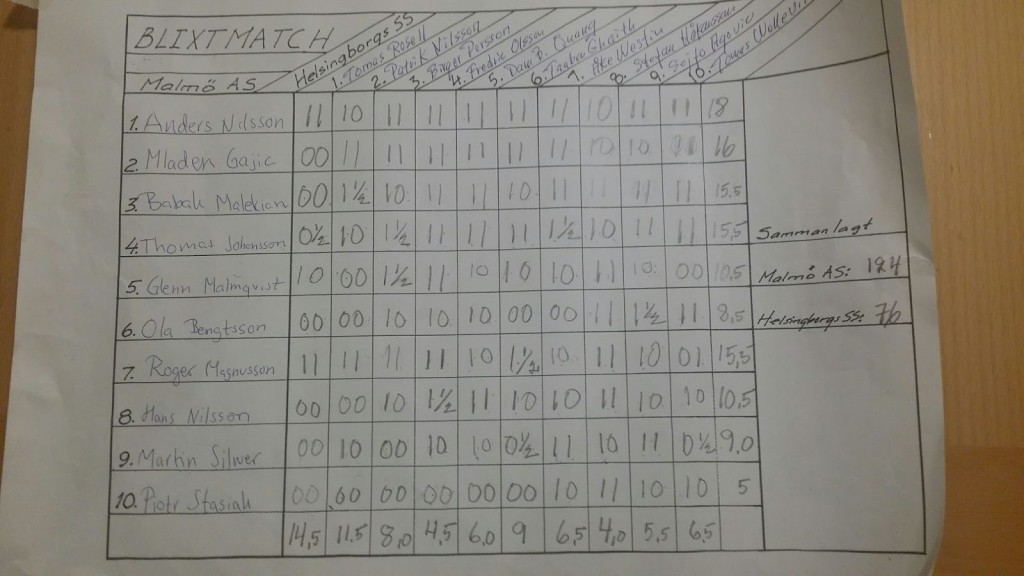 BLIXTMATCH
Malmö AS
Helsingborgs SS
1. Tomas Rosell
2. Patrik Nilsson
3. Birger Persson
4. Fredrik Olsson
5. Quang
6. Ghaith
7. Åke Westin
8. Stefan Håkansson
9.
10.
1. Anders Nilsson 11 10 11 11 11 11 11 10 11 11 18
2. Mladen Gajic 00 11 11 11 11 11 11 10 10 11 16
3. Babak Malekian 00 1½ 10 11 11 10 11 11 11 11 15,5
4. Thomas Johansson 0½ 10 1½ 11 11 11 1½ 10 11 11 15,5
Sammanlagt
5. Glenn Malmqvist 10 00 1½ 11 10 10 10 11 10 00 10,5
Malmö AS: 124
6. Ola Bengtsson 00 00 10 10 10 00 00 11 1½ 11 8,5
Helsingborgs SS: 76
7. Roger Magnusson 11 11 11 11 10 1½ 10 11 10 01 15,5
8. Hans Nilsson 00 00 10 1½ 11 10 10 11 10 10 10,5
9. Martin Silwer 00 10 00 10 10 0½ 11 10 11 0½ 9,0
10. Piotr Stasiak 00 00 00 00 00 00 10 11 10 10 5
14,5 11,5 8,0 4,5 6,0 9 6,5 4,0 5,5 6,5